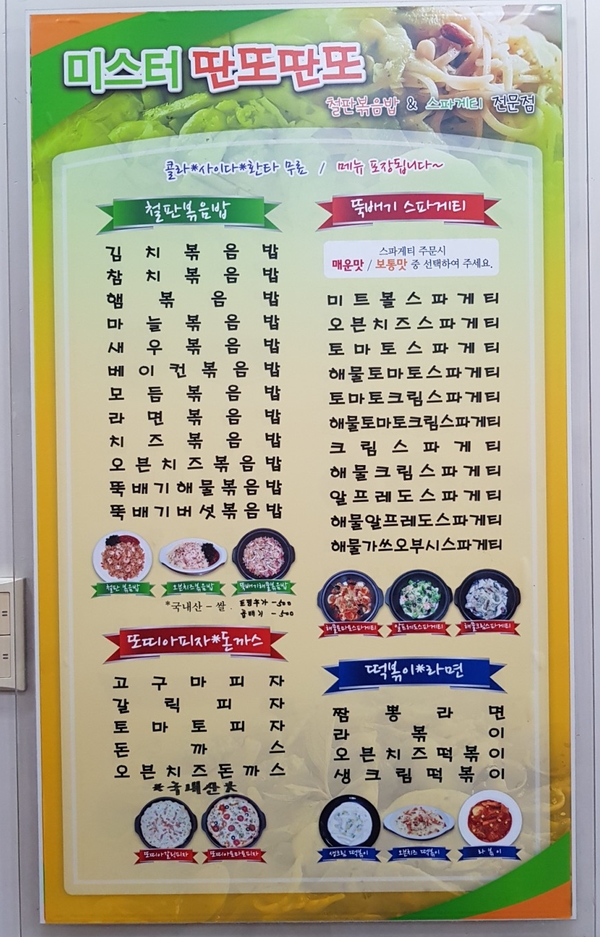 미스터 딴또딴또
철판볶음밥 & 스파게티 전문점
콜라*사이다*환타 무료 / 메뉴 포장됩니다~
철판볶음밥
김치볶음밥
참치볶음밥
햄볶음밥
마늘볶음밥
새우볶음밥
베이컨볶음밥
모듬볶음밥
라면볶음밥
치즈볶음밥
오븐치즈볶음밥
뚝배기해물볶음밥
뚝배기버섯볶음밥
철판 볶음밥
오븐치즈볶음밥
뚝배기해물볶음밥
*국내산 - 쌀.
토핑추가 - 500
곱빼기 - 500
또띠아피자*돈까스
고구마피자
갈릭피자
토마토피자
돈까스
오븐치즈돈까스
*국내산*
또띠아갈릭피자
또띠아토마토피자
뚝배기 스파게티
스파게티 주문시
매운맛 / 보통맛 중 선택하여 주세요.
미트볼스파게티
오븐치즈스파게티
토마토스파게티
해물토마토스파게티
토마토크림스파게티
해물토마토크림스파게티
크림스파게티
해물크림스파게티
알프레도스파게티
해물알프레도스파게티
해물가쓰오부시스파게티
해물토마토스파게티
알프레도스파게티
해물크림스파게티
떡볶이*라면
짬뽕라면
라볶이
오븐치즈떡볶이
생크림떡볶이
생크림 떡볶이
오븐치즈 떡볶이
라볶이